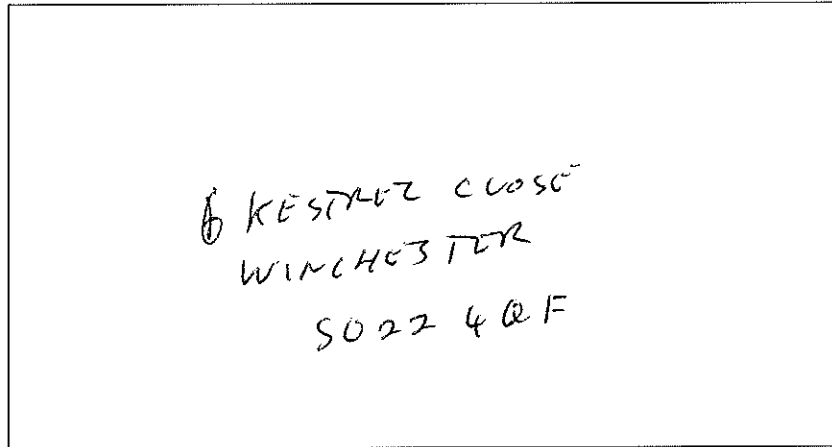 6 KESTREL CLOSE
WINCHESTER
SO22 4QF